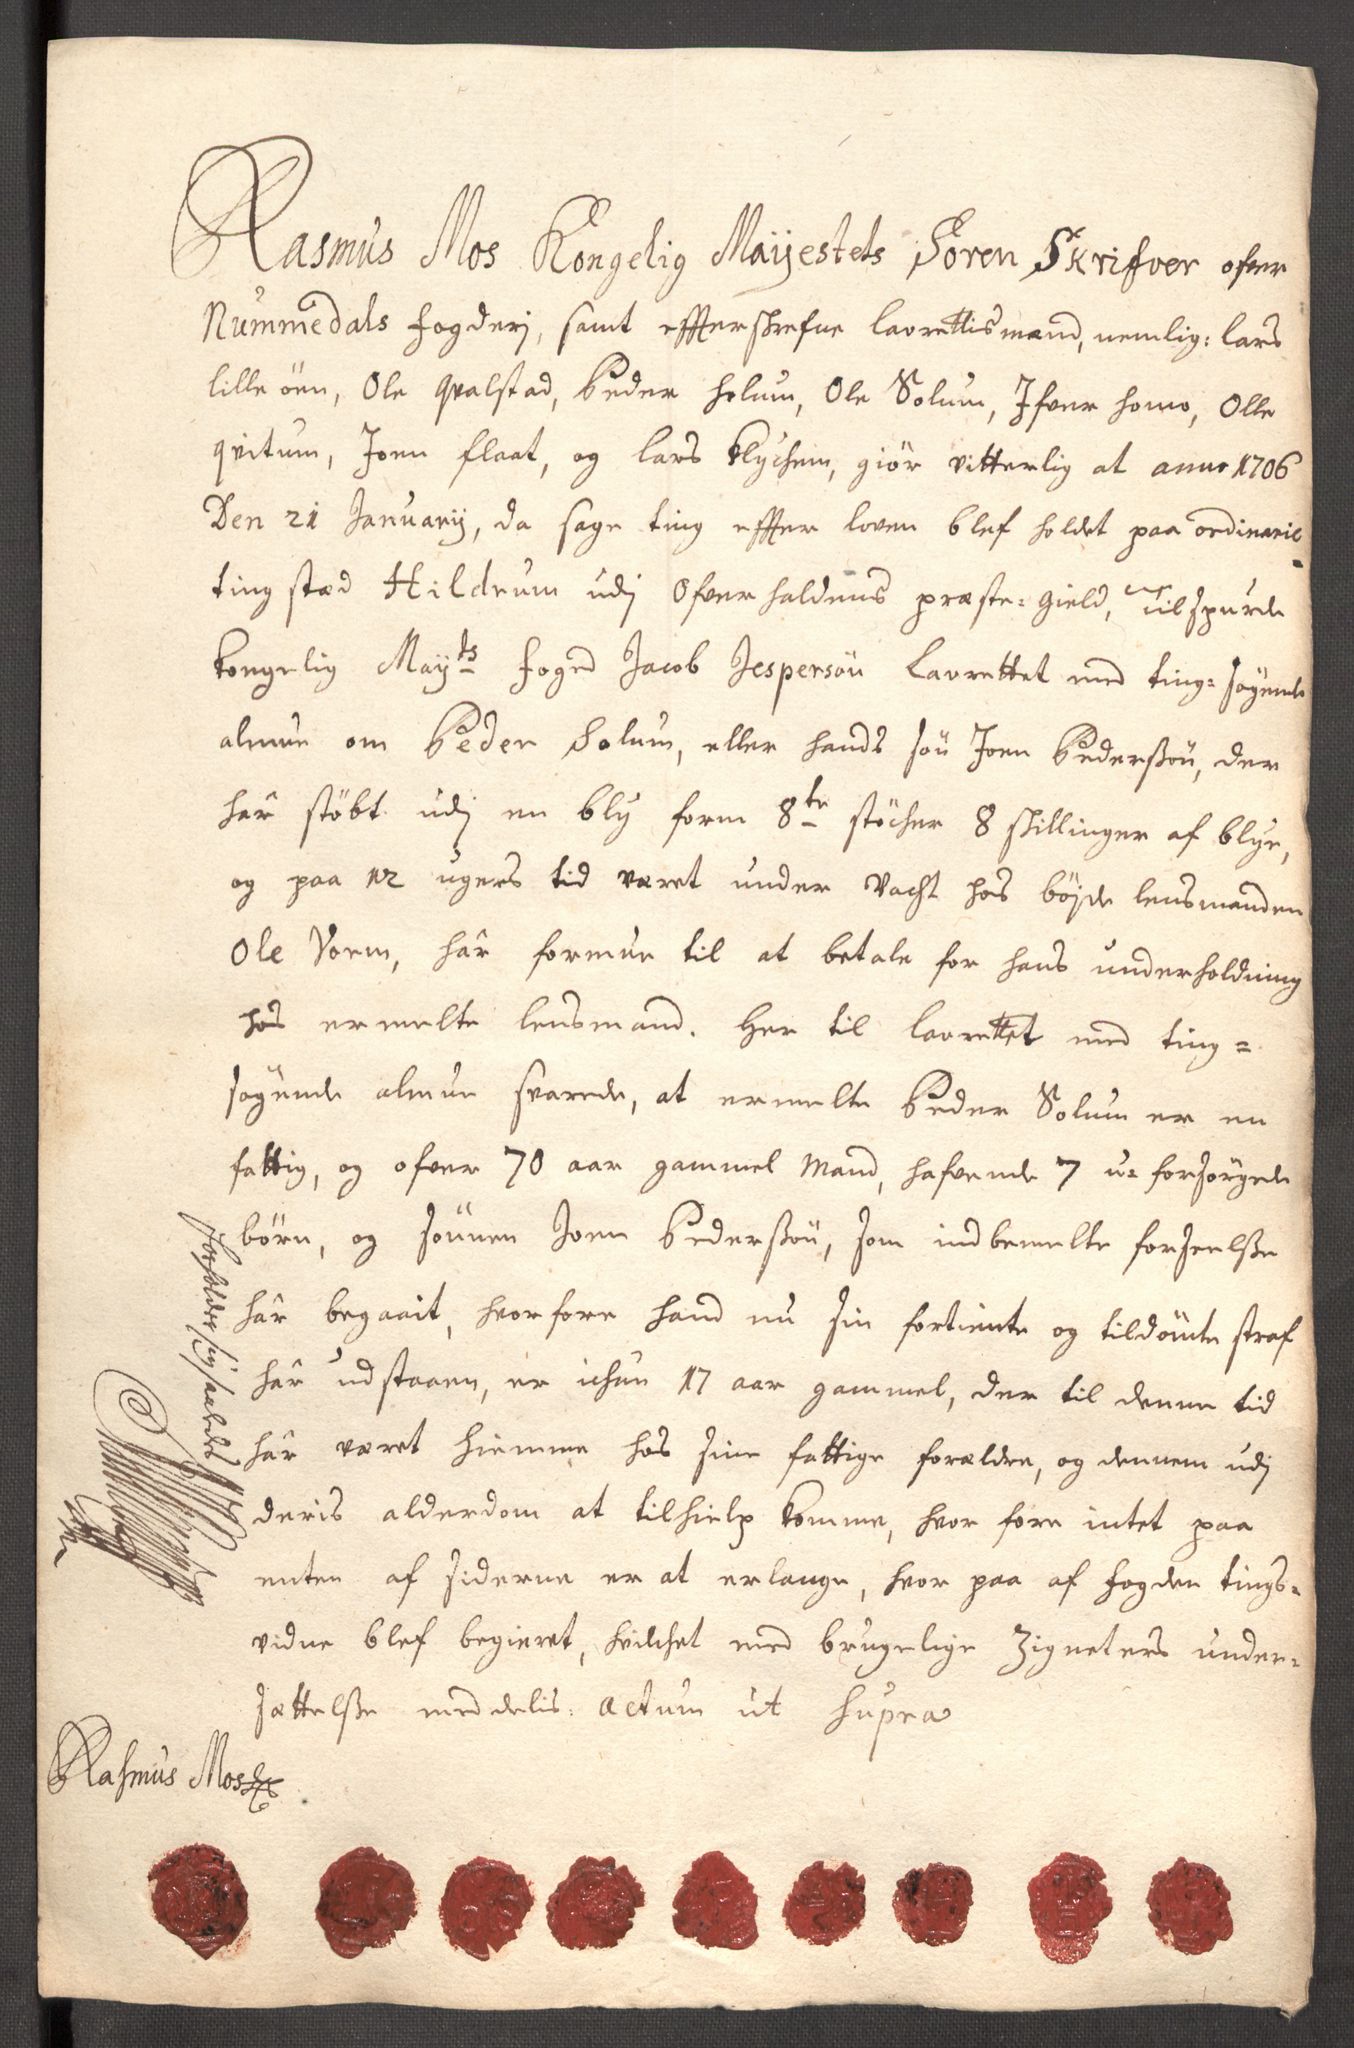 Rasmus Mos Kongelig Mayestets Soren Skrifver ofver
Nummedals fogderj, samt effterskrefne lavrettismænd, nemlig: lars
lille öen, Ole qvalstad, Peder holum, Ole Solum, Ifver homo, Olle
qvitum, Joen flaat, og lars Klychem, giör vitterlig at anno 1706
Den 21 Januarij, da sage ting effter loven blef holdet paa ordinarie
ting stæd Hildrum udj Ofverhaldens præste=gield, Tilspurde
kongelig Mayts foged Jacob Jespersön Lavrettet med ting=søgende
almue om Peder Solum, eller hands sön Joen Pederssön, der
har stöbt udj en bly form 8te stöcher 8 skillinger af blye,
og paa 12 ugers tid været under vacht hos böjde lensmanden
Ole Vorm, har formue til at betale for hans underholdning
hos ermelte lensmand. Her til lavrettet med ting=
sögende almue svarede, at ermelte Peder Solum er en
fattig, og ofver 70 aar gammel Mand, hafvende 7 u=forsörgede
börn, og sönnen Joen Pederssön, som indbemelte forseelsse
har begaait, hvorfore hand nu sin fortiente og tildömte straf
har udstaaen, er ichun 17 aar gammel, der til denne tid
har været hiemme hos sine fattige forældre, og dennem udj
deris alderdom at tilhielp komme, hvor fore intet paa
enten af siderne er at erlange, hvor paa af fogden tings=
vidne blef begieret, hvilchet med brugelige Zigneters under=
sættelsse meddelis. Actum ut supra
Rasmus Mos
forholder sig saaledes